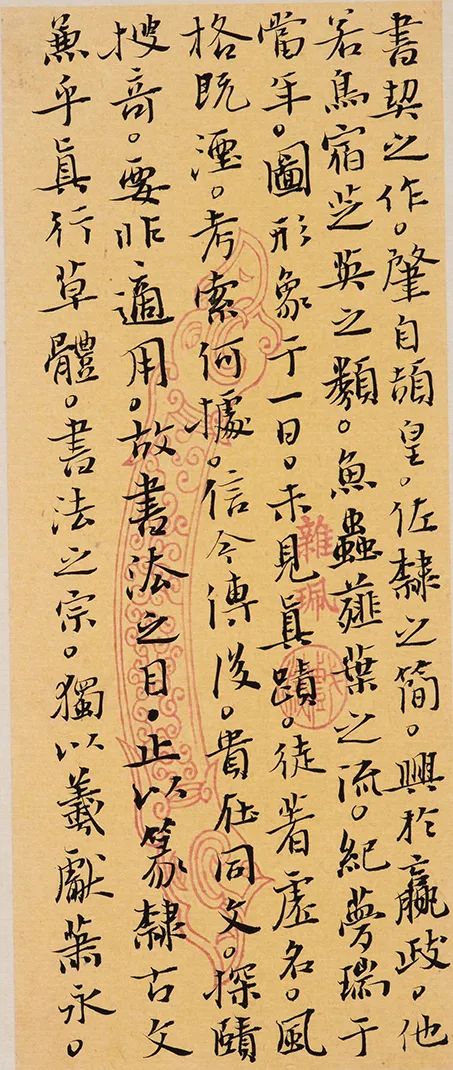 書契之作。肇自頡皇。佐隸之簡。興於嬴政。他
若鳥宿芝英之類。魚蟲薤葉之流。紀夢瑞于
當年。圖形象于一日。未見眞蹟。徒著虛名。風
格既湮。考索何據。信今傳後。貴在同文。探賾
搜奇。要非適用。故書法之目。止以篆隸古文
兼乎眞行草體。書法之宗。獨以羲獻蕭永。
雜珮